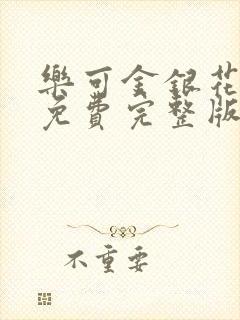 樂可金銀花
免費完整版
不重要